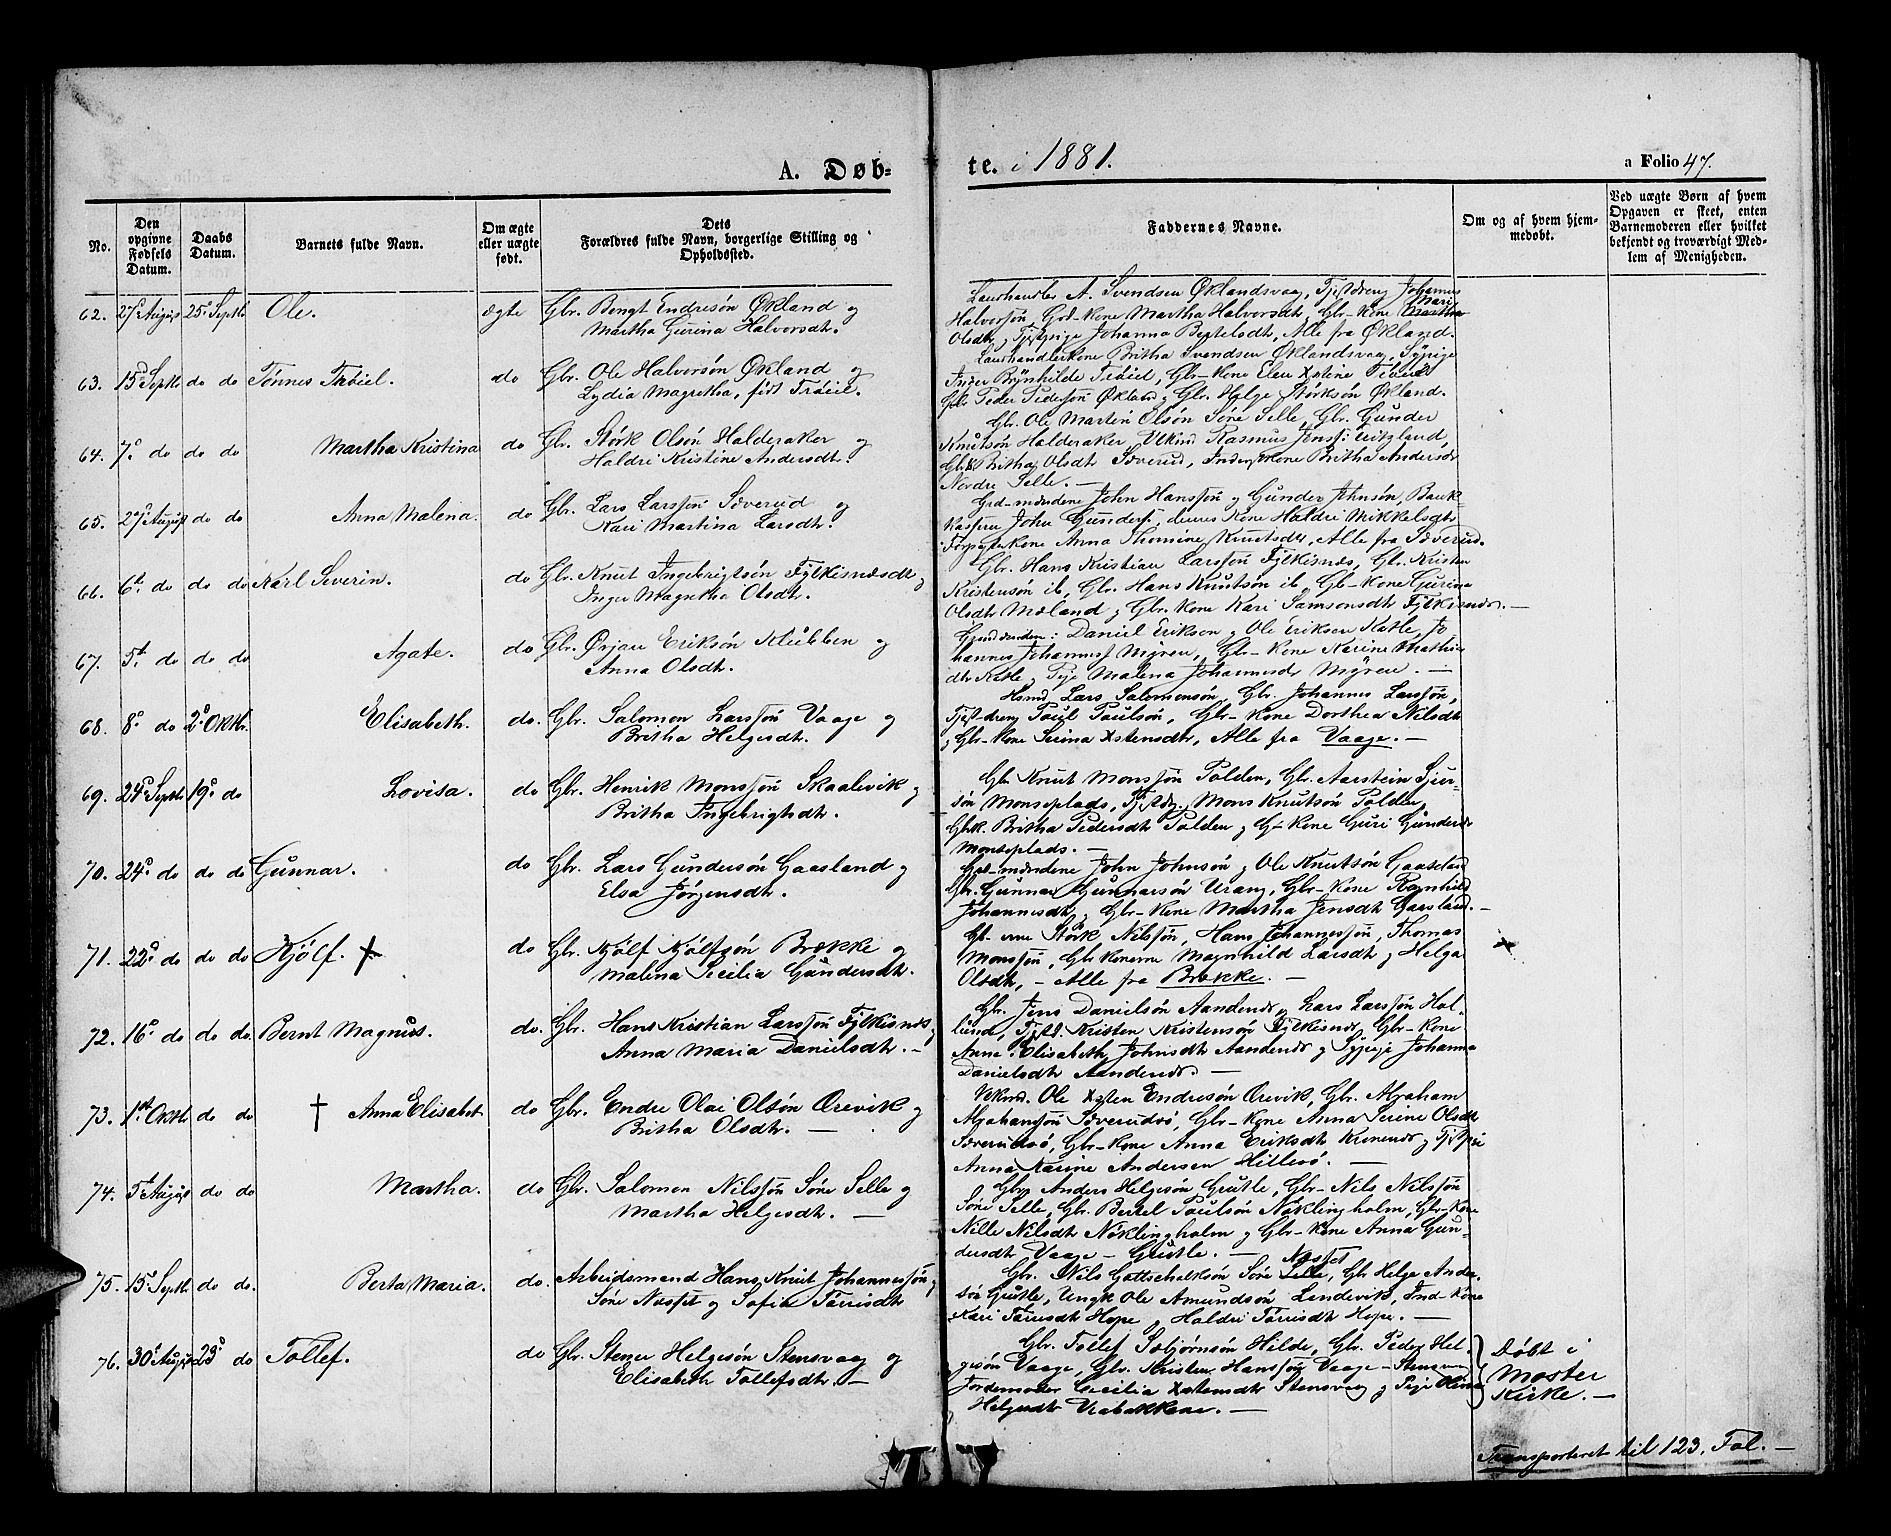 A. Døb-
te. i 1881.
a Folio 47.
No.
Den opgivne Fødsels Datum.
Daabs Datum.
Barnets fulde Navn.
Om ægte eller uægte født.
Dets Forældres fulde Navn, borgerlige Stilling og Opholdssted.
Faddernes Navne.
Om og af hvem hjem-
medøbt.
Ved uægte Børn af hvem
Opgaven er skeet, enten
Barnemoderen eller hvilket
bekjendt og troværdigt Med-
lem af Menigheden.
62. 27 August 25 Septb Ole. ægte Gbr. Bengt Endresön Økland og
Martha Gurina Halvorsdtr.
Svendsen Øklandsvaag, Johannes
Halvorsön, Gbr-Kone Martha Halvorsdt, Gbr-Kone Mari
Olsdtr, Johanna Bertelsdtr, Alle fra Økland.
63. 15 Septb do do Tönnes Tröiel. do Gbr. Ole Halvorsön Økland og
Lydia Magretha, född Tröiel.
Britha Svendsen Øklandsvaag, Sypige
Inger Brynhilde Tröiel, Gbr-Kone Elen
Gbr Peder Pedersön Økland, Gbr. Helge Störksön Økland.
64. 7. do do do Martha Kristina do Gbr. Störk Olsön Halderaker og
Haldri Kristine Andersdtr.
Gbr. Ole Martin Olsön Söre Selle, Gbr. Gunder
Knutsön Halderaker, Rasmus
Britha Olsdtr Sæverud, Britha Andersdtr
Nordre Selle. —
65. 27 August do do Anna Malena. do Gbr. Lars Larssön Sæverud og
Kari Martina Larsdtr.
John Hanssön og Gunder Johnsön,
John Gunders., dennes Kone Haldri Mikkelsdtr
Anna Thomine Knutsdtr, Alle fra Sæverud.
66. 6te do do do Karl Severin. do Gbr. Knut Ingebrigtsön Fylkisnæs og
Inger Magretha Olsdtr.
Gbr. Hans Kristian Larssön Fylkisnæs, Gbr. Kristen
Kristensön ib, Gbr. Hans Knutsön ib, Gbr-Kone Gurina
Olsdtr Mæland og Gbr. Kone Kari Samsonsdtr Fylkisnæs. —
67. 5te do do do Agate. do Gbr. Ørjan Eriksön Klubben og
Anna Olsdtr.
Daniel Eriksen og Ole Eriksen Katle, Jo
hannes Johannes. Myren, Gbr-Kone Karine
Katle, Pige Malena Johannesdr Myren. —
68. 8. do 2. Oktb. Elisabeth. do. Gbr. Salomon Larssön Vaage og
Britha Helgesdtr.
Lars Salomonsön, Gbr. Johannes Larssön,
Paul Paulsön, Gbr-Kone Dorthea Nilsdtr
og Gbr-Kone Serina, Alle fra Vaage. —
69. 24 Septb 19. do Lovisa. do Gbr. Henrik Monssön Skaalevik og
Britha Ingebrigtsdtr.
Gbr Knut Monssön Tolden, Gbr. Aarstein Sjur-
sön Monseplads, Mons Knutsön Tolden,
Gbrk. Britha Pedersdtr Tolden og G-Kone Guri Gundersdr
Monseplads. —
70. 24. do do do Gunnar. do Gbr. Lars Gundersön Gaasland og
Elsa Jörgensdtr.
John Johnsön og Ole Knutsön Gaasland
Gbr. Gunnar Gunnarsön Urang, Gbr-Kone Ragnhild
Johannesdtr, Gbr-Kone Martha Jensdtr Gaasland. —
71. 22. do do do Kjölf. † do Gbr. Kjölf Kjölfsön Brække og
Malena Secilia Gundersdtr.
Störk Nilssön, Hans Johannessön, Thomas
Monssön, Gbr Konerne Magnhild Larsdtr og Helga
Olsdtr, – Alle fra Brække. —
72. 16. do do do Bernt Magnus. do. Gbr. Hans Kristian Larssön Fylkisnæs,
Anna Maria Danielsdtr. —
Gbr. Jens Danielsön, Lars Larssön Hol-
lund, Kristen Kristensön Fylkisnæs, Gbr-Kone
Anne Elisabeth Johnsdtr og Sypige Johanna
Danielsdtr
73. 1st Oktb do do † Anna Elisabet do Gbr. Endre Olai Olsön Ørevik og
Britha Olsdtr. —
Ole Endresön Ørevik, Gbr. Abraham
Abrahamsön Sæverudsö, Gbr-Kone Anna Serine Olsdtr
Sæverudsö, Gbr-Kone Anna Eriksdtr
Anna Karine Andersen Hillesö. —
74. 5te August do do Martha. do Gbr. Salomon Nilssön Söre Selle og
Martha Helgesdtr. —
Anders Helgesön Grutle, Gbr-Nils Nilssön
Söre Selle, Gbr. Bertel Paulsön Nöklingholm, Gbr-Kone
Nille Nilsdtr Nöklingholm og Gbr-Kone Anna Gun-
dersdtr Vaage – Grutle. —
75. 15 Septb do do. Berta Maria. do. Arbeidsmand Hans Knut Johannessön,
Söre Næsset og Sofia Törrisdtr
Gbr. Nils Gottschalksön Söre Næsset, Gbr Helge Ander-
sön Grutle, Ungk Ole Amundsön Lendevik, Ind Kone
Kari Törrisdtr Hope og Haldri Törrisdtr Hope. —
76. 30 August 23. do Tollef. do Gbr. Stener Helgesön Stensvaag og
Elisabeth Tollefsdtr. —
Gbr. Tollef Sæbjörnsön Hilde, Gbr. Peder Hel-
gesön Vaage, Gbr. Kristen Hanssön Vaage – Stensvaag
Jordemoder Cecilia Stensvaag og Pige Olina
Helgesdtr Urabakkene. —
Döbt i
Moster
Kirke. —
Transporteret til 123. Fol. —